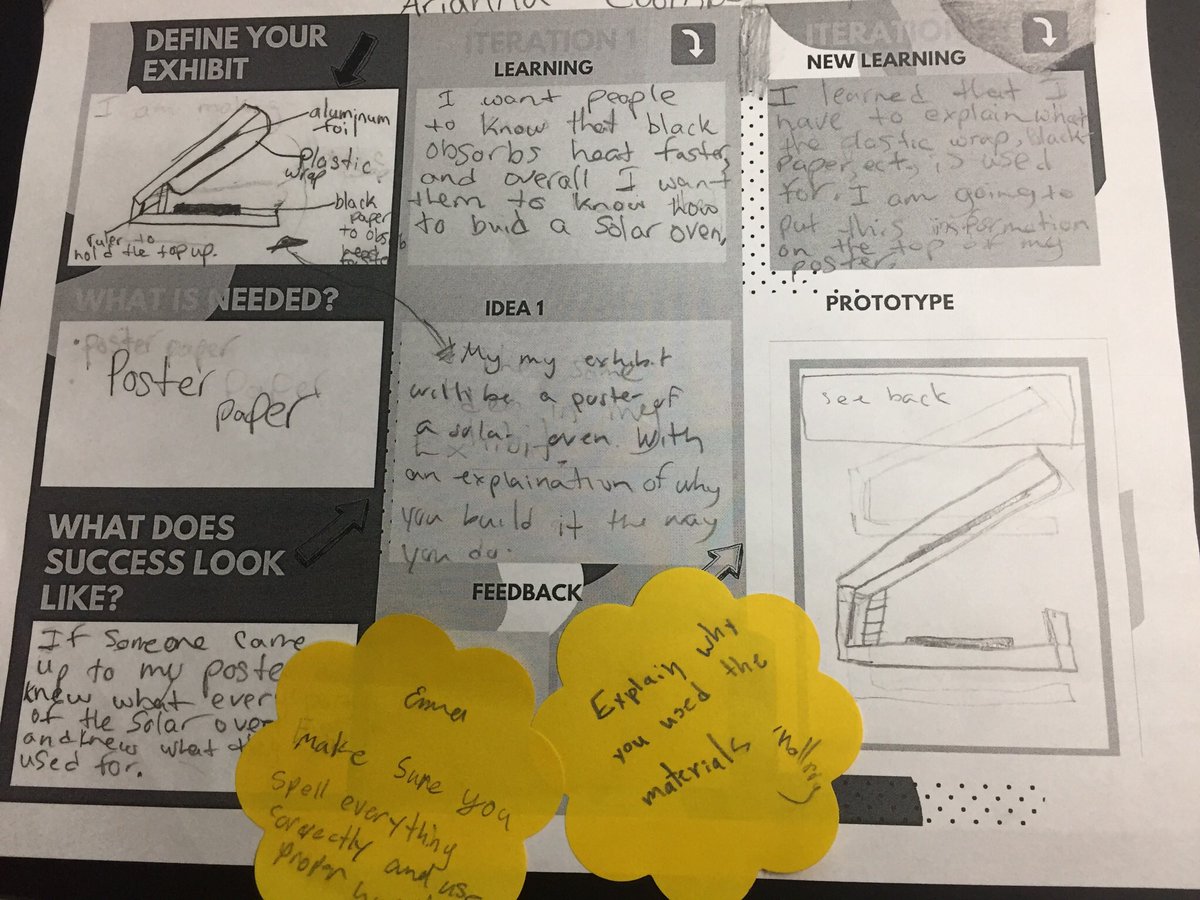 Arianna
DEFINE YOUR
EXHIBIT
I am
aluminum
foil
Plastic
wrap
black
paper
to obs
ruler to
hold the top up.
WHAT IS NEEDED?
poster paper
Poster
paper
WHAT DOES
SUCCESS LOOK
LIKE?
If someone came
up to my poste
knew what ever
of the solar ove
and knew what
used for.
ITERATION 1
LEARNING
I want people
to know that black
absorbs heat faster,
and overall I want
them to know how
to buid a solar oven.
IDEA 1
My my exhibit
will be a poster of
a solar oven with
an explaination of why
you build it the way
you do.
FEEDBACK
Emma
make sure you
spell everything
correctly and use
proper
Explain why
you used the
materials
ITERATION
NEW LEARNING
I learned that I
have to explain what
the plastic wrap, black
paper, ect, is used
for. I am going to
put this information
on the top of my
poster.
PROTOTYPE
see back